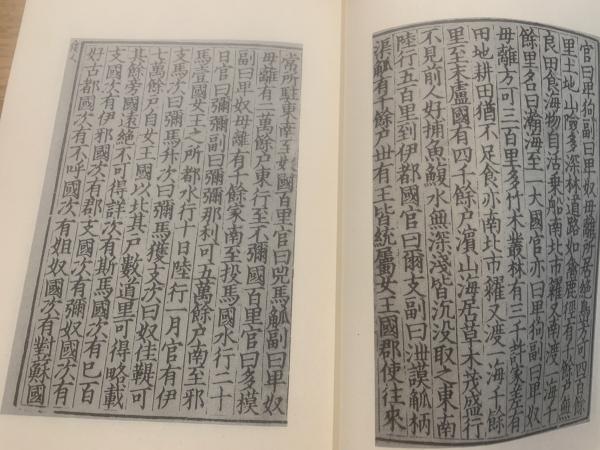 官曰卑狗副曰卑奴毋離所居絶島方可四百餘
里土地山險多深林道路如禽鹿徑有千餘戶無
良田食海物自活乗船南北市糴又南渡一海千
餘里名曰瀚海至一大國官亦曰卑狗副曰卑奴
毋離方可三百里多竹木叢林有三千許家差有
田地耕田猶不足食亦南北市糴又渡一海千餘
里至末盧國有四千餘戶濱山海居草木茂盛行
不見前人好捕魚鰒水無深淺皆沈没取之東南
陸行五百里到伊都國官曰爾支副曰泄謨觚柄
渠觚有千餘戶丗有王皆統屬女王國郡使往來
常所駐東南至奴國百里官曰兕馬觚副曰卑奴
毋離有二萬餘戶東行至不彌國百里官曰多模
副曰卑奴毋離有千餘家南至投馬國水行二十
日官曰彌彌副曰彌彌那利可五萬餘戶南至邪
馬壹國女王之所都水行十日陸行一月官有伊
支馬次曰彌馬升次曰彌馬獲支次曰奴佳鞮可
七萬餘戶自女王國以北其戶數道里可得略載
其餘旁國遠絶不可得詳次有斯馬國次有已百
支國次有伊邪國次有郡支國次有彌奴國次有
好古都國次有不呼國次有姐奴國次有對蘇國